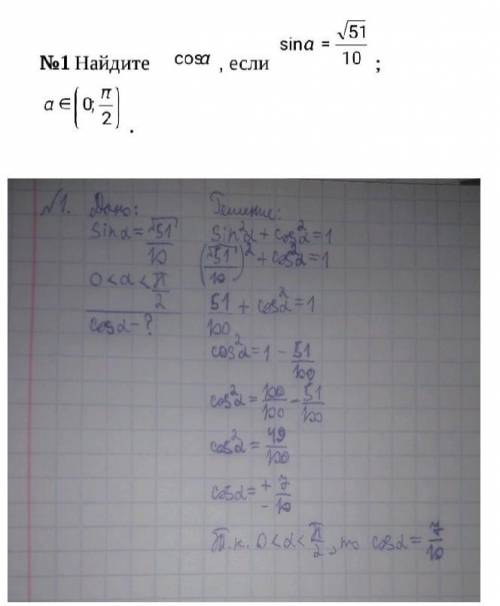 №1 Найдите cosα, если sinα = √51/10 ;
α∈(0; π/2).
№1. Дано: Решение:
sinα = √51/10 sin²α + cos²α = 1
(√51/10)² + cos²α = 1
0 < α < π/2
51/100 + cos²α = 1
cosα - ?
cos²α = 1 - 51/100
cos²α = 100/100 - 51/100
cos²α = 49/100
cosα = ± 7/10
Т.к. 0 < α < π/2, то cosα = 7/10